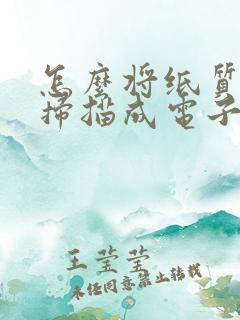 怎麼將纸質
掃描成電子
王莹莹
未经同意禁止转载